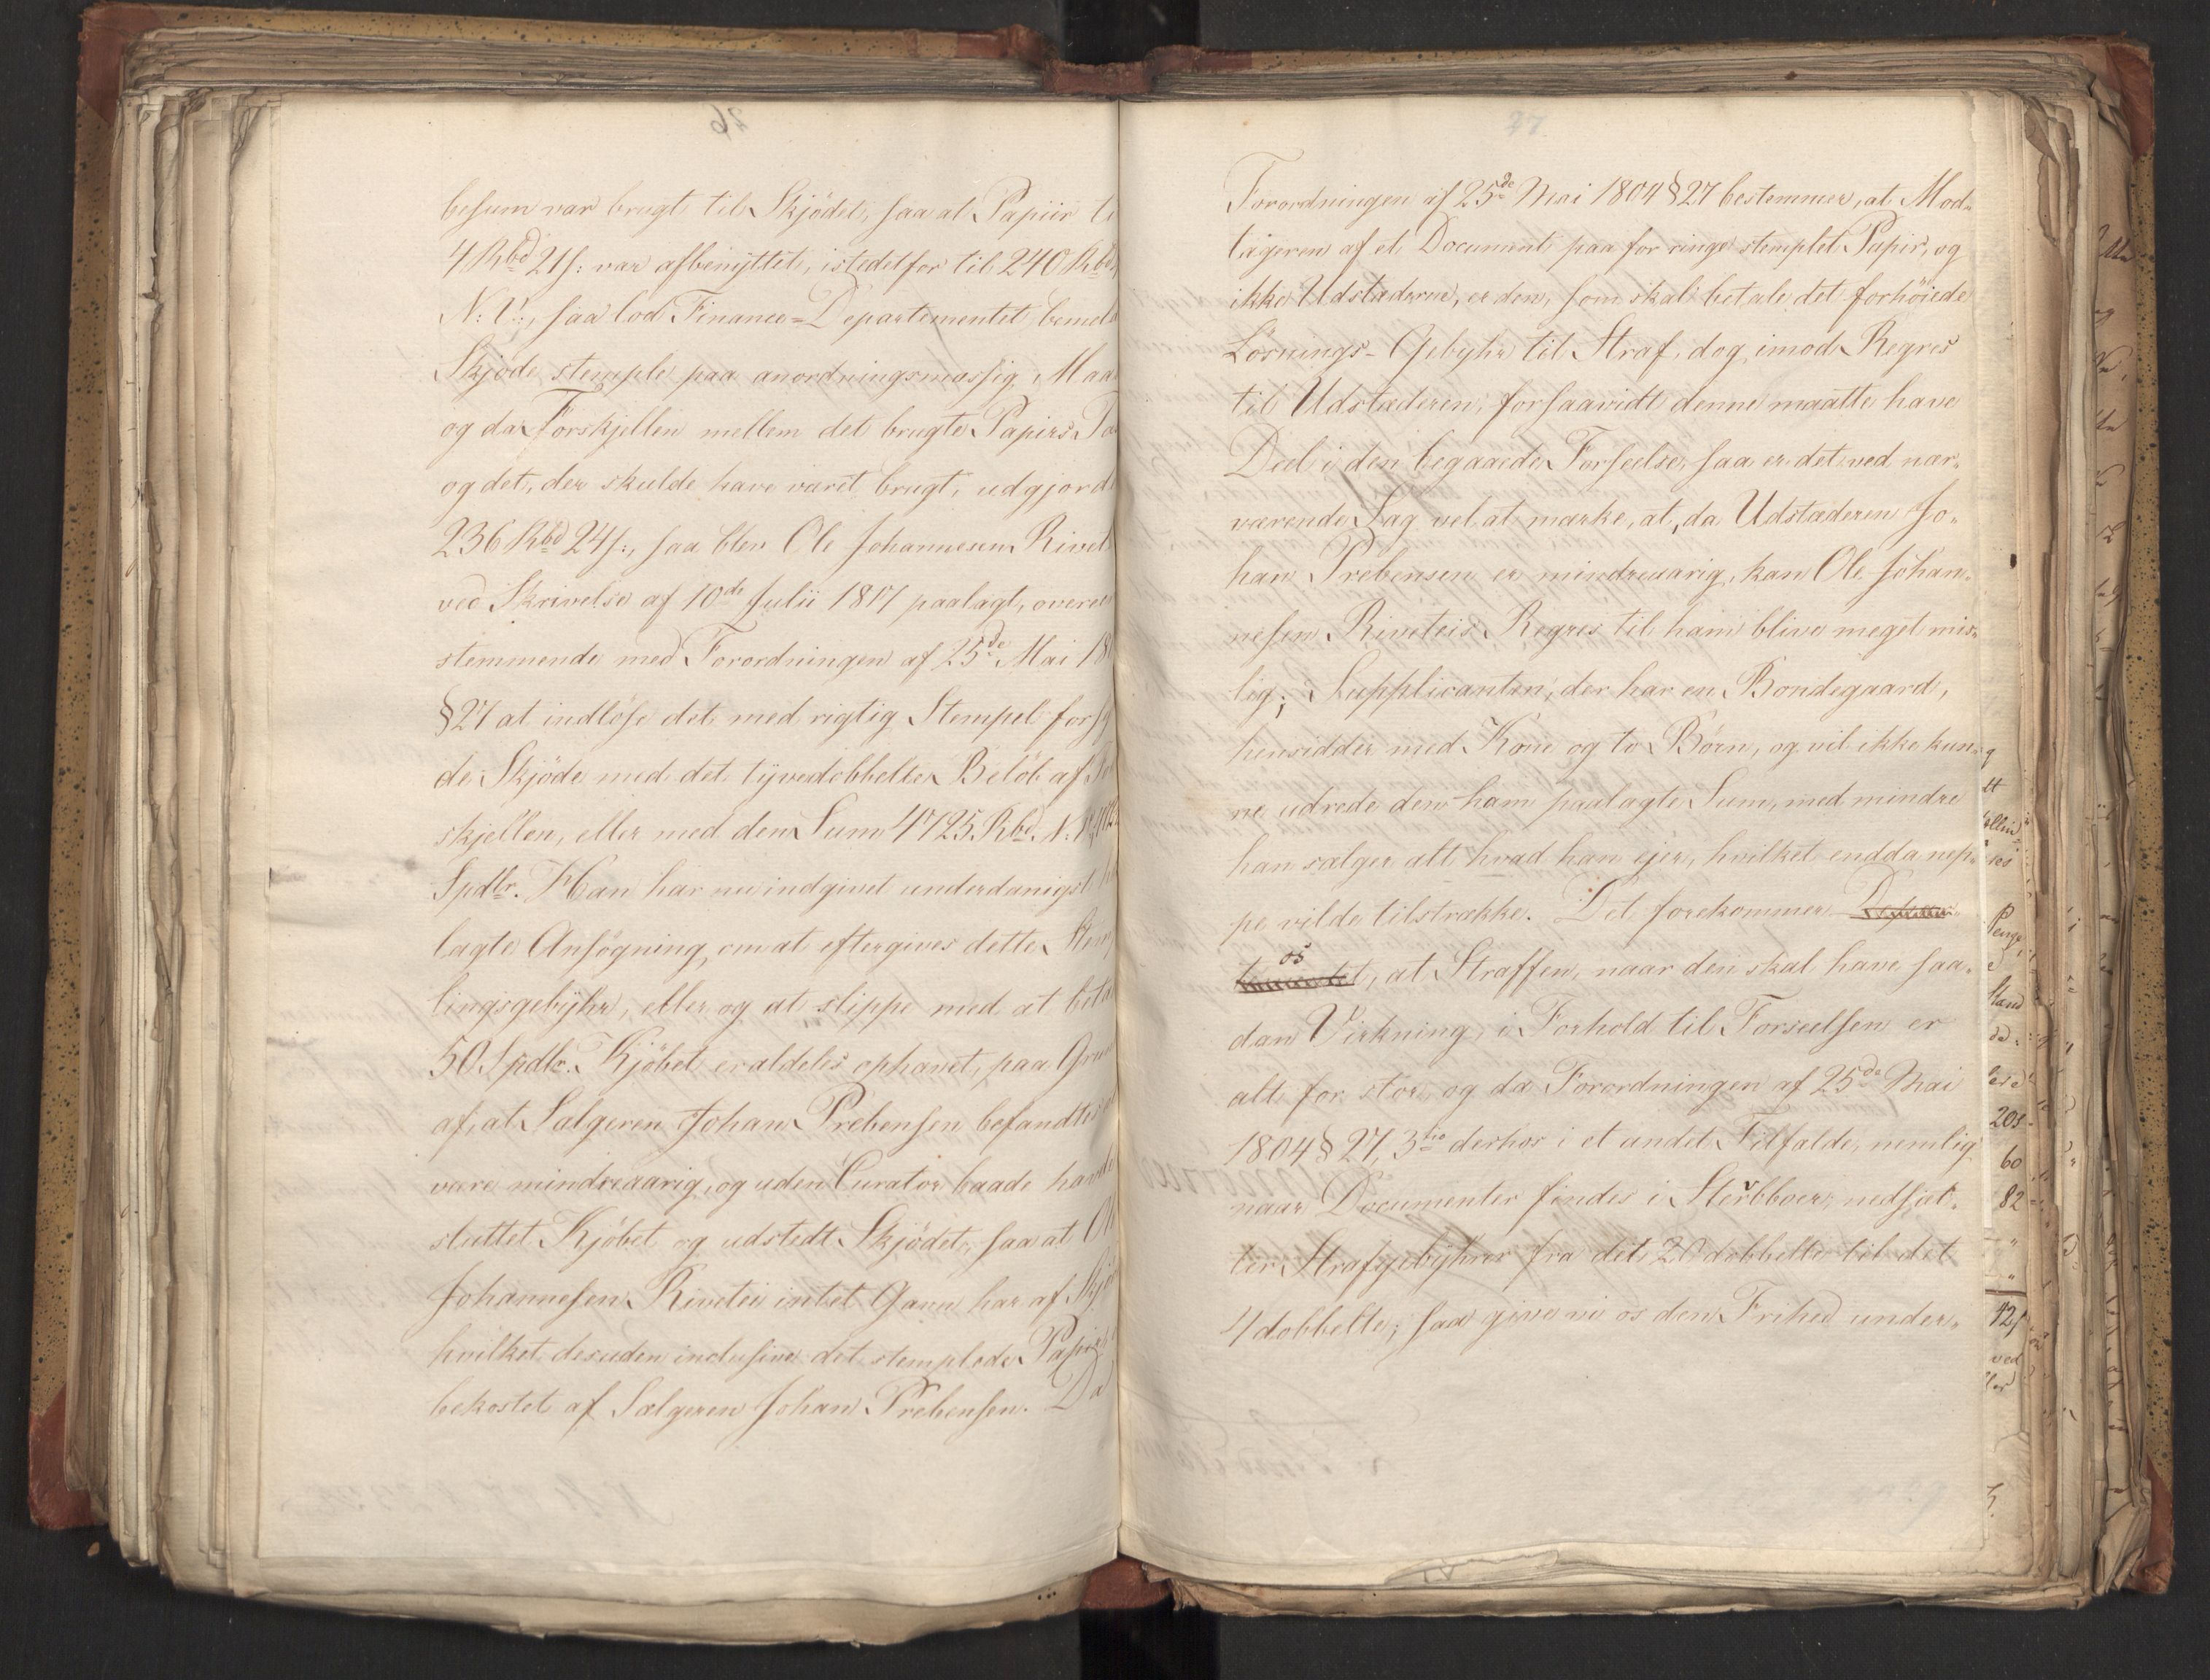 besum var brugt til Skjödet, saa at Papiir
4 Rbd 21 s: var afbenÿttet, istedetfor til 240 Rbd
N: V:, saa lod Finance-Departementet bemel
Skjöde stemple paa anordningsmæssig Maa
og da Forskjellen mellem det brugte Papirs
og det, der skulde have været brugt, udgjord
236 Rbd 24 s:, saa blev Ole Johannesen Rivet
ved Skrivelse af 10de Julii 1817 paalagt, overee
stemmende med Forordningen af 25de Mai 18
§ 27 at indlöse det med rigtig Stempel forsÿ
de Skjöde med det tÿvedobbelte Belöb af
skjellen, eller med den Sum 4725 Rbd. N: V:
Spdlr. Han har nu indgivet underdanigst
lagte Ansögning, om at eftergives dette Stem
lingsgebÿhr, eller og at slippe med at beta
50 Spdlr. Kjöbet er aldeles ophævet, paa Gru
af, at Sælgeren Johan Prebensen befandtes
være mindreaarig, og uden Curator baade havde
sluttet Kjöbet og udstedt Skjödet, saa at Ol
Johannesen Rivetei intet Gavn har af Skjö
hvilket desuden inclusive det stemplede Papir
bekostet af Sælgeren Johan Prebensen. Da
27
Forordningen af 25de Mai 1804 § 27 bestemmer, at Mod-
tageren af et Document paa for ringe stemplet Papir, og
ikke Udstæderne, er den, som skal betale det forhöiede
Lösnings-Gebyhr til Straf, dog imod Regres
til Udstæderen, forsaavidt denne maatte have
Deel i den begaaede Forseelse, saa er det ved nær-
værende Sag vel at mærke, at, da Udstæderen Jo-
han Prebensen er mindreaarig, kan Ole Johan-
nesen Riveteis Regres til ham blive meget mis-
lig; Supplicanten, der har en Bondegaard,
hensidder med Kone og to Börn, og vil ikke kun-
ne udrede den ham paalagte Sum, med mindre
han sælger alt hvad han ejer, hvilket endda nep-
pe vilde tilstrække. Det forekommer Departe-
os
mentet, at Straffen, naar den skal have saa-
dan Virkning, i Forhold til Forseelsen er
alt for stor, og da Forordningen af 25de Mai
1804 § 27, 3tio derhos i et andet Tilfælde, nemlig
naar Documenter findes i Sterbboer, nedsæt-
ter Strafgebÿhret fra det 20 dobbelte til det
4 dobbelte; saa give vi os den Frihed under-